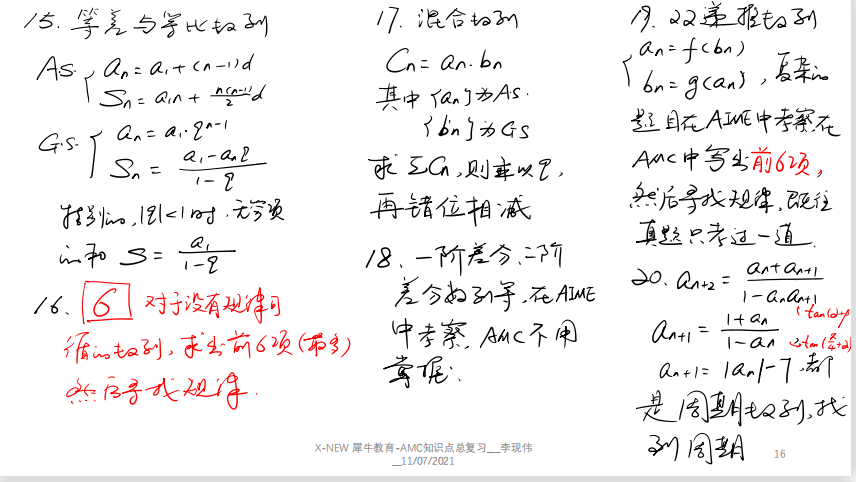 15. 等差与等比数列
A.S. { an = a1 + (n-1)d
Sn = a1n + n(n-1)/2 d
G.S. { an = a1·q^n-1
Sn = (a1-anq)/(1-q)
特别的, |q|<1时, 无穷项
的和 S = a1/(1-q)
16. 6 对于没有规律可
循的数列, 求出前6项(最多)
然后寻找规律.
17. 混合数列
Cn = an·bn
其中{an}为A.S.
{bn}为G.S
求ΣCn, 则乘以q,
再错位相减
18. 一阶差分, 二阶
差分数列等, 在AIME
中考察, AMC不用
掌握.
19. 22递推数列
{ an = f(bn)
bn = g(an) , 复杂的
题目在AIME中考察, 在
AMC中写出前6项,
然后寻找规律, 既往
真题只考过一道.
20. an+2 = (an+an+1)/(1-anan+1)
(tan(α+β
an+1 = (1+an)/(1-an) , tan(π/4+α)
an+1 = |an|-7, 都
是周期数列, 找
到周期
X-NEW 犀牛教育-AMC知识点总复习___李现伟
__11/07/2021
16